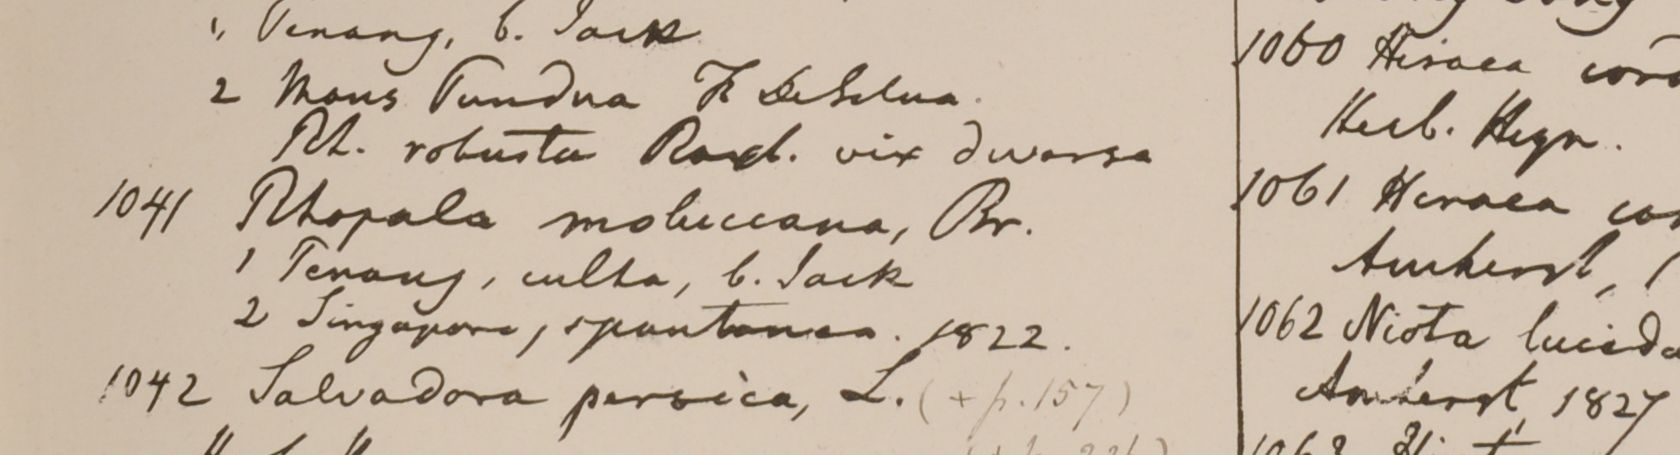 1, Penang, G. Jack
2 Mons Pundua F. DeSilva.
Rh. robusta Roxb. vix diversa
1041 Rhopala moluccana, Br.
1 Penang, culta, G. Jack
2 Singapore, spontanea. 1822.
1042 Salvadora persica, L. (+ p. 157)
1060 Hiraea cord
Herb. Heyn.
1061 Hiraea cor
Amherst, (
1062 Niota lucida
Amherst, 1827
1063